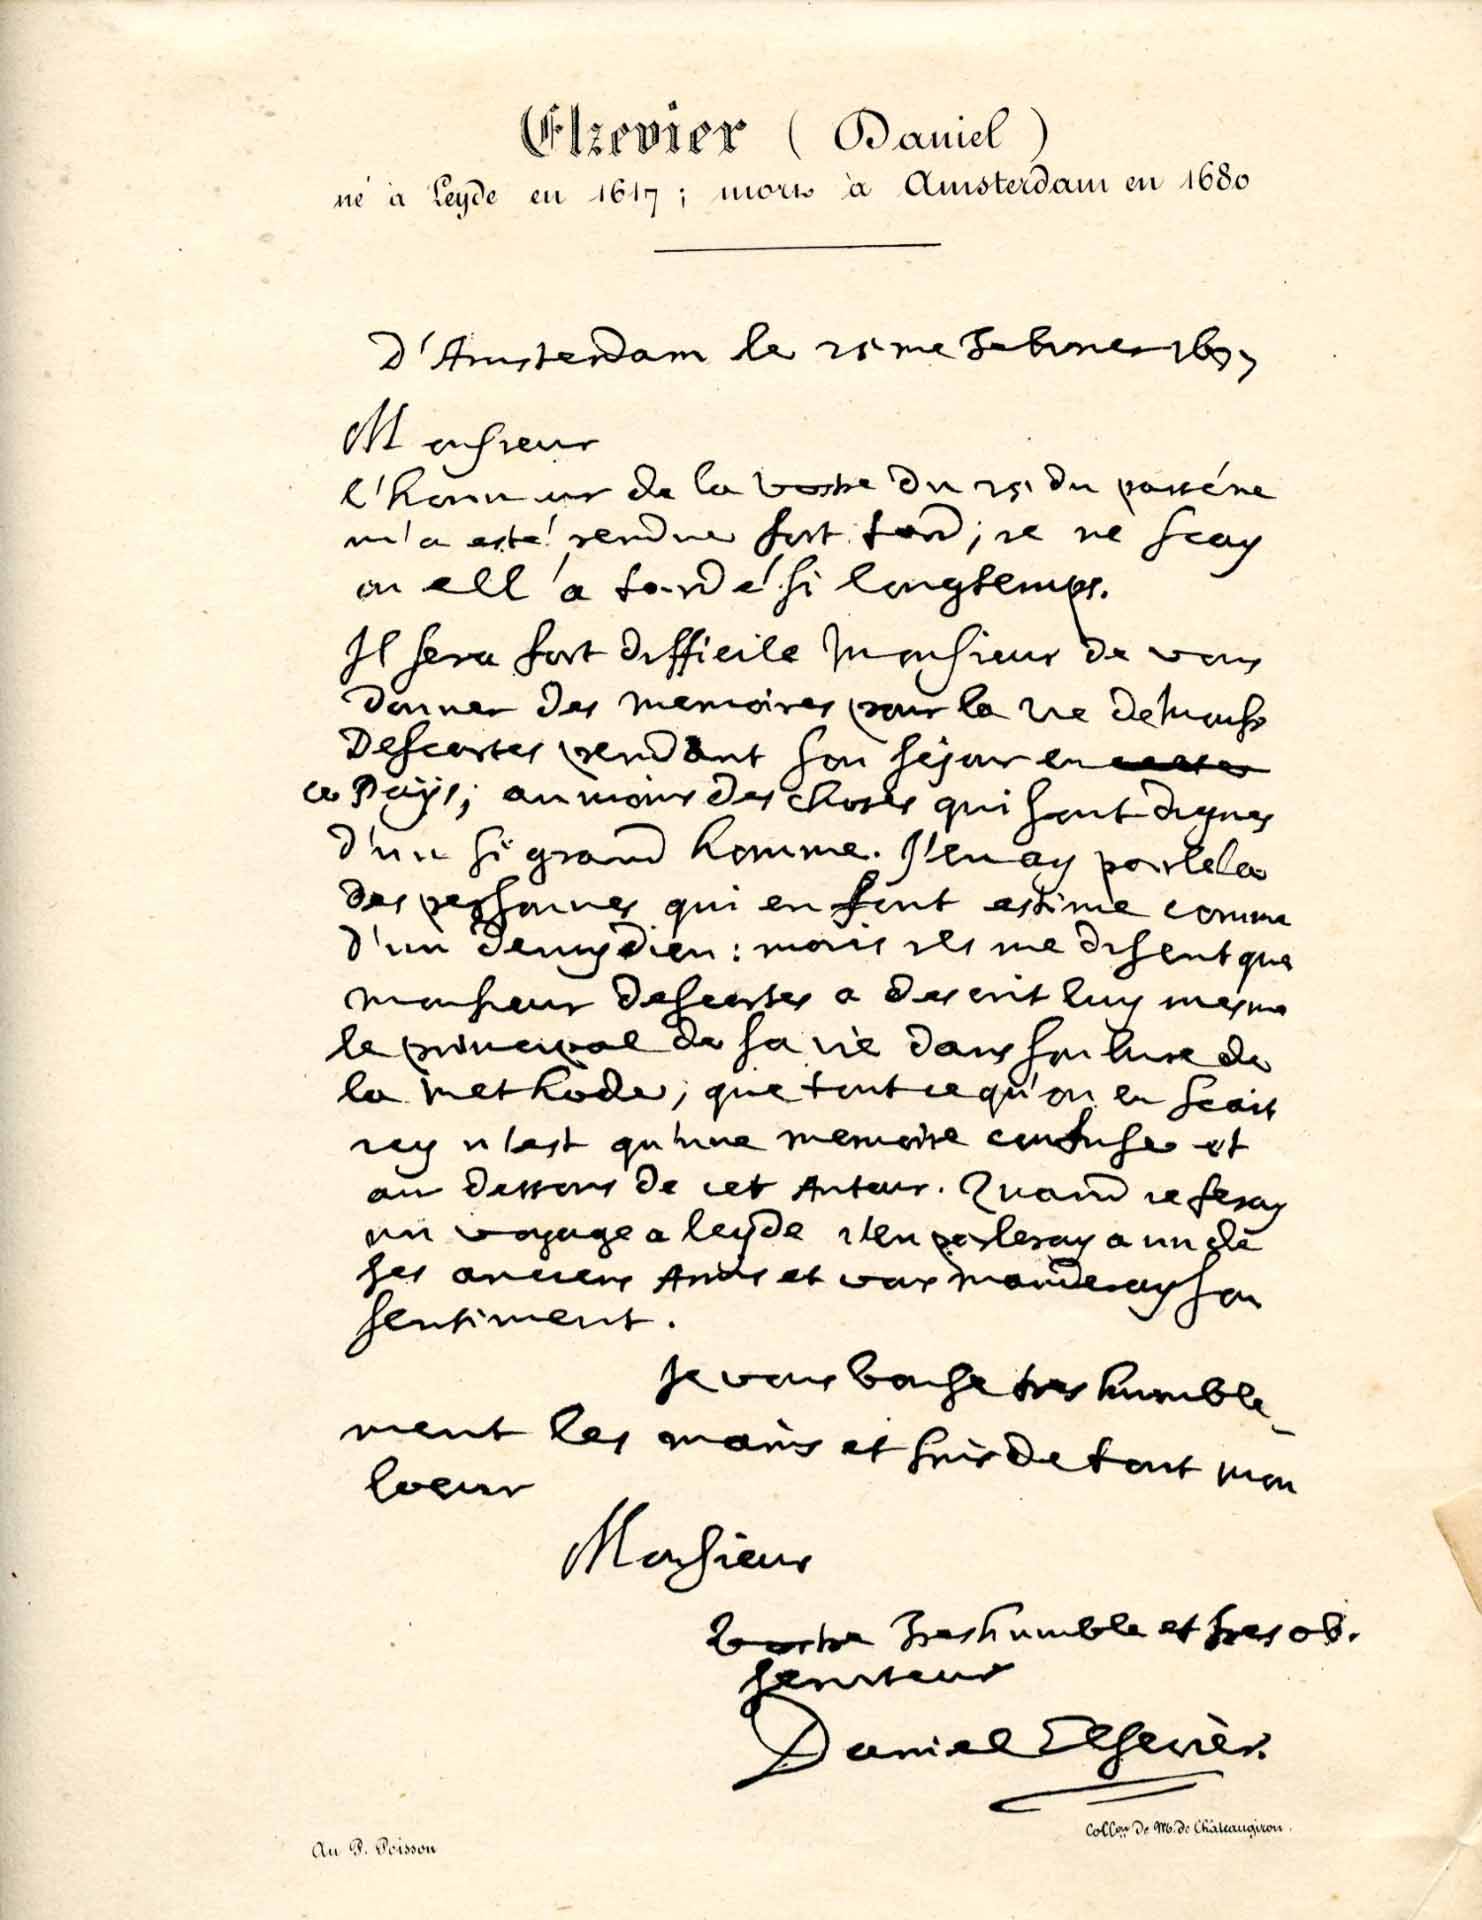 Elzevier (Daniel)
né à Leyde en 1617; mort à Amsterdam en 1680
d'Amsterdam le 25me Febvrier
Monsieur
l'honneur de la vostre du 25 du passé ne
m'a esté rendue fort tard; je ne scay
ou ell'a tardé si longtemps.
Il sera fort difficile Monsieur de vous
donner des memoires pour la vie de Monsr
Descartes pendant son séjour en
ce Païs; au moins des choses qui sont dignes
d'un si grand homme. J'en ay parlé a
des personnes qui en font estime comme
d'un demy dieu: mais ils me disent que
monsieur descartes a descrit luy mesme
le principal de sa vie dans son livre de
la methode; que tout ce qu'on en scait
icy n'est qu'une memoire confuse et
au dessous de cet Auteur. Quand je feray
un voyage a leyde j'en parleray a un de
ses anciens Amis et vous manderay son
sentiment.
Je vous baise tres humble-
ment les mains et suis de tout mon
coeur
Monsieur
Vostre Tres humble et tres ob.
serviteur
Daniel Elsevier.
Collon de M. de Châteaugiron.
Au P. Poisson